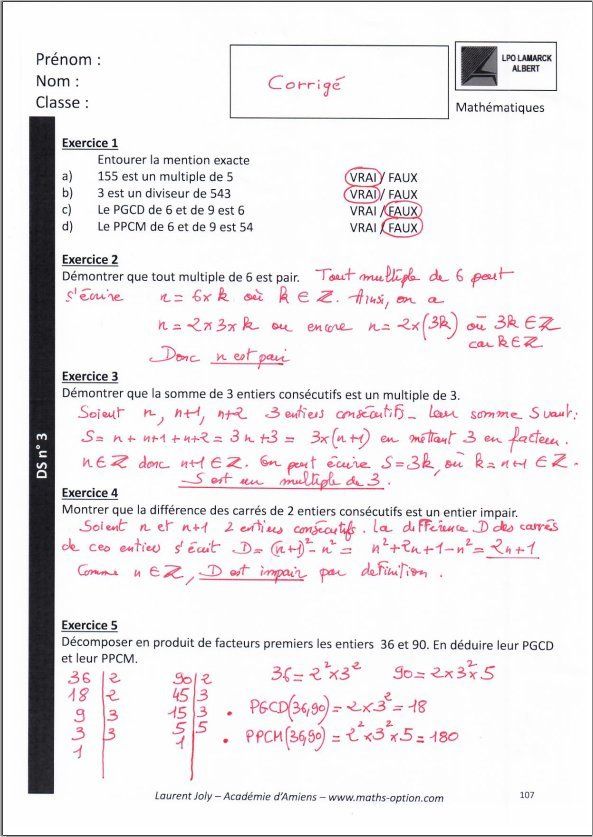 Prénom :
Nom :
Classe :
Corrigé
LPO LAMARCK
ALBERT
Mathématiques
DS n° 3
Exercice 1
Entourer la mention exacte
a) 155 est un multiple de 5 VRAI / FAUX
b) 3 est un diviseur de 543 VRAI / FAUX
c) Le PGCD de 6 et de 9 est 6 VRAI / FAUX
d) Le PPCM de 6 et de 9 est 54 VRAI / FAUX
Exercice 2
Démontrer que tout multiple de 6 est pair. Tout multiple de 6 peut
s'écrire n = 6×k où k ∈ ℤ. Ainsi, on a
n = 2×3×k ou encore n = 2×(3k) où 3k ∈ ℤ
car k ∈ ℤ
Donc n est pair
Exercice 3
Démontrer que la somme de 3 entiers consécutifs est un multiple de 3.
Soient n, n+1, n+2 3 entiers consécutifs. Leur somme S vaut :
S = n + n+1 + n+2 = 3n+3 = 3×(n+1) en mettant 3 en facteur.
n ∈ ℤ donc n+1 ∈ ℤ. On peut écrire S = 3k, où k = n+1 ∈ ℤ.
S est un multiple de 3.
Exercice 4
Montrer que la différence des carrés de 2 entiers consécutifs est un entier impair.
Soient n et n+1 2 entiers consécutifs. La différence D des carrés
de ces entiers s'écrit D = (n+1)² - n² = n² + 2n + 1 - n² = 2n+1
Comme n ∈ ℤ, D est impair par définition.
Exercice 5
Décomposer en produit de facteurs premiers les entiers 36 et 90. En déduire leur PGCD
et leur PPCM.
36 | 2 90 | 2 36 = 2² × 3² 90 = 2×3²×5
18 | 2 45 | 3
9 | 3 15 | 3 • PGCD(36,90) = 2×3² = 18
3 | 3 5 | 5
1 1 • PPCM(36,90) = 2²×3²×5 = 180
Laurent Joly – Académie d'Amiens – www.maths-option.com 107